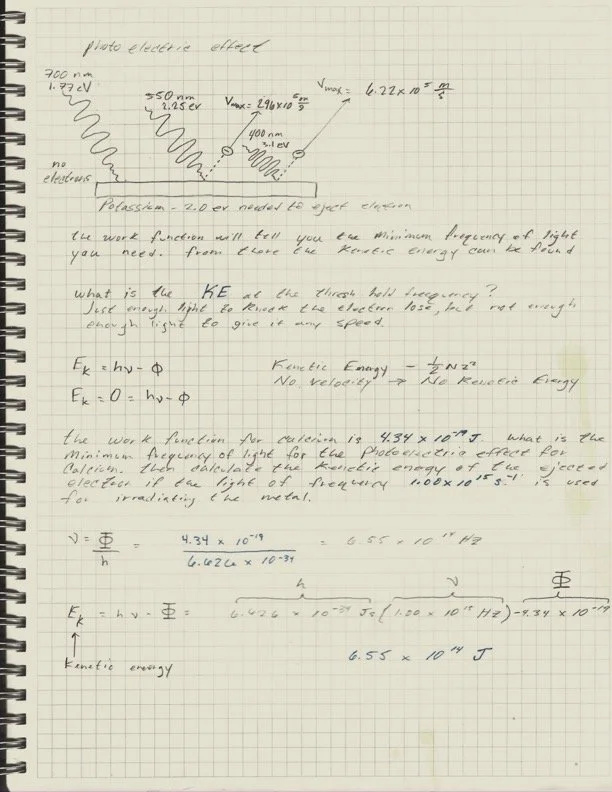 photo electric effect
700 nm
1.77 eV
550 nm
2.25 ev
Vmax = 2.96 x 10^5 m/s
Vmax = 6.22 x 10^5 m/s
400 nm
3.1 ev
no
electrons
Potassium - 2.0 ev needed to eject electron
the work function will tell you the minimum frequency of light
you need. from there the Kenetic energy can be found
what is the KE at the thresh hold frequency?
Just enough light to knock the electron lose, but not enough
enough light to give it any speed.
E_k = hν - Φ
Kenetic Energy - 1/2
No velocity → No Kenetic Energy
E_k = 0 = hν - Φ
the work function for calcium is 4.34 x 10^-19 J. what is the
minimum frequency of light for the photoelectric effect for
Calcium. then calculate the Kenetic energy of the ejected
electron if the light of frequency 1.00 x 10^15 s^-1 is used
for irradiating the metal.
ν = Φ/h = 4.34 x 10^-19 / 6.626 x 10^-34 = 6.55 x 10^14 Hz
h ν Φ
E_k = hν - Φ = 6.626 x 10^-34 Js (1.00 x 10^15 Hz) - 4.34 x 10^-19
6.55 x 10^14 J
Kenetic energy